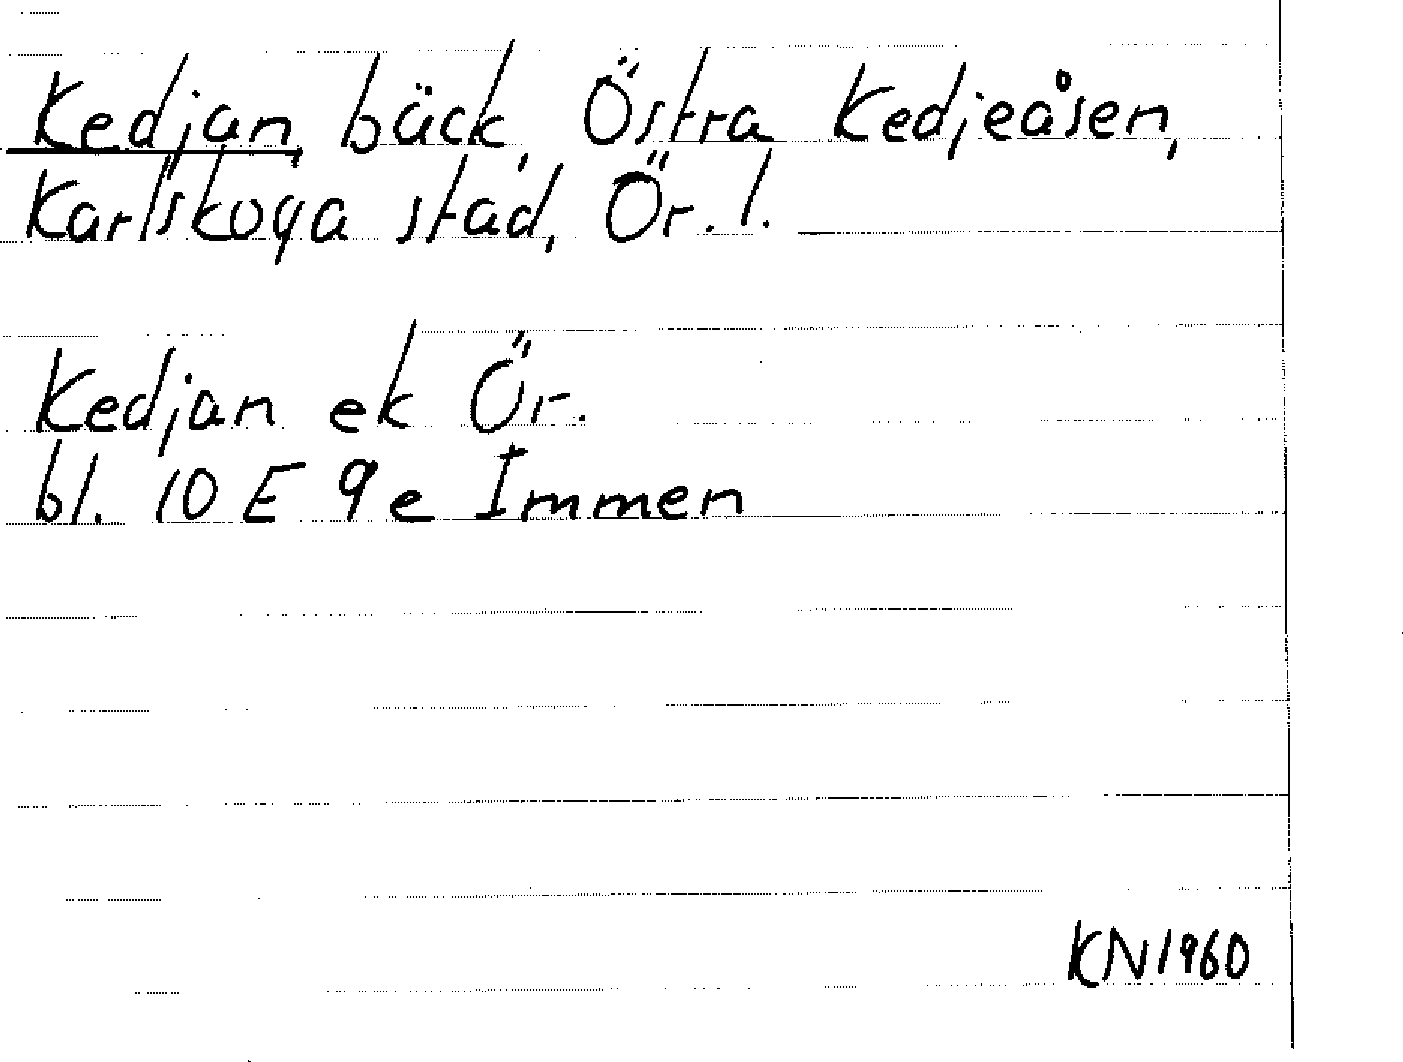 Kedjan, bäck, Östra Kedjeåsen,
Karlskoga stad, Ör. l.
Kedjan ek Ör.
bl. 10 E 9 e Immen
KN 1960